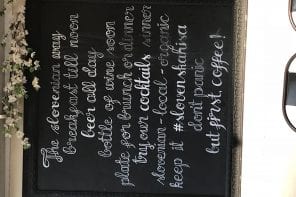 The slovenian way
breakfast till noon
beer all day
bottle of wine soon
plate for brunch or dinner
try our cocktails sinner
slovenian-local-organic
keep it #slovenskahisa
don't panic
but first, coffee!